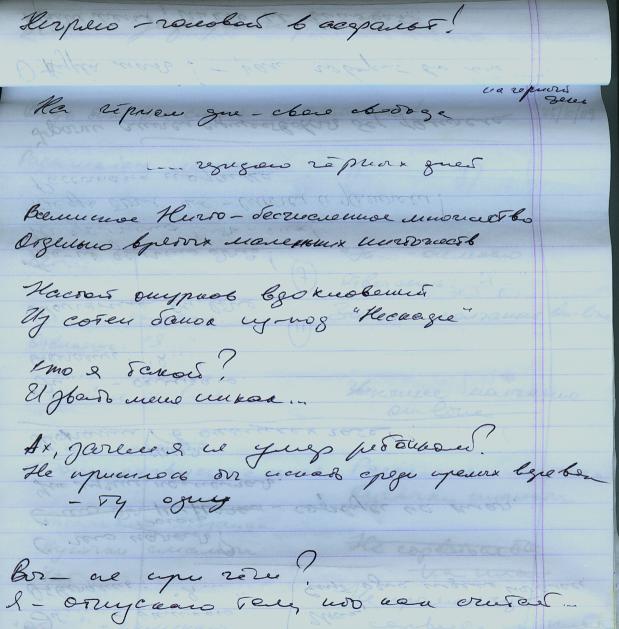 головой в асфальт!
на чёрный
день
На чёрном дне – своя свобода
..... чёрных дней
Всемирное Ничто – бесчисленное множество
Отдельно взятых маленьких ничтожеств
Настой окурков вдохновений
Из сотен банок из-под "Нескафе"
Кто я такой?
И звать меня никак...
Ах, зачем я не умер ребёнком?
Не пришлось бы искать среди прелых
– ту одну
Вы – не при чём?
Я – отпускаю тем, кто как считает...